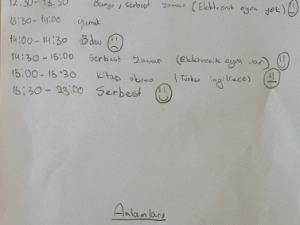 12.30-13.30 Banyo, Serbest Zaman (Elektronik eşya yok)
13:30-14:00 Yemek
14:00-14:30 Ödev
14:30-15:00 Serbest Zaman (Elektronik eşya var)
15:00-15:30 Kitap okuma (Türkçe ingilizce)
15:30-23:00 Serbest
Anlamları